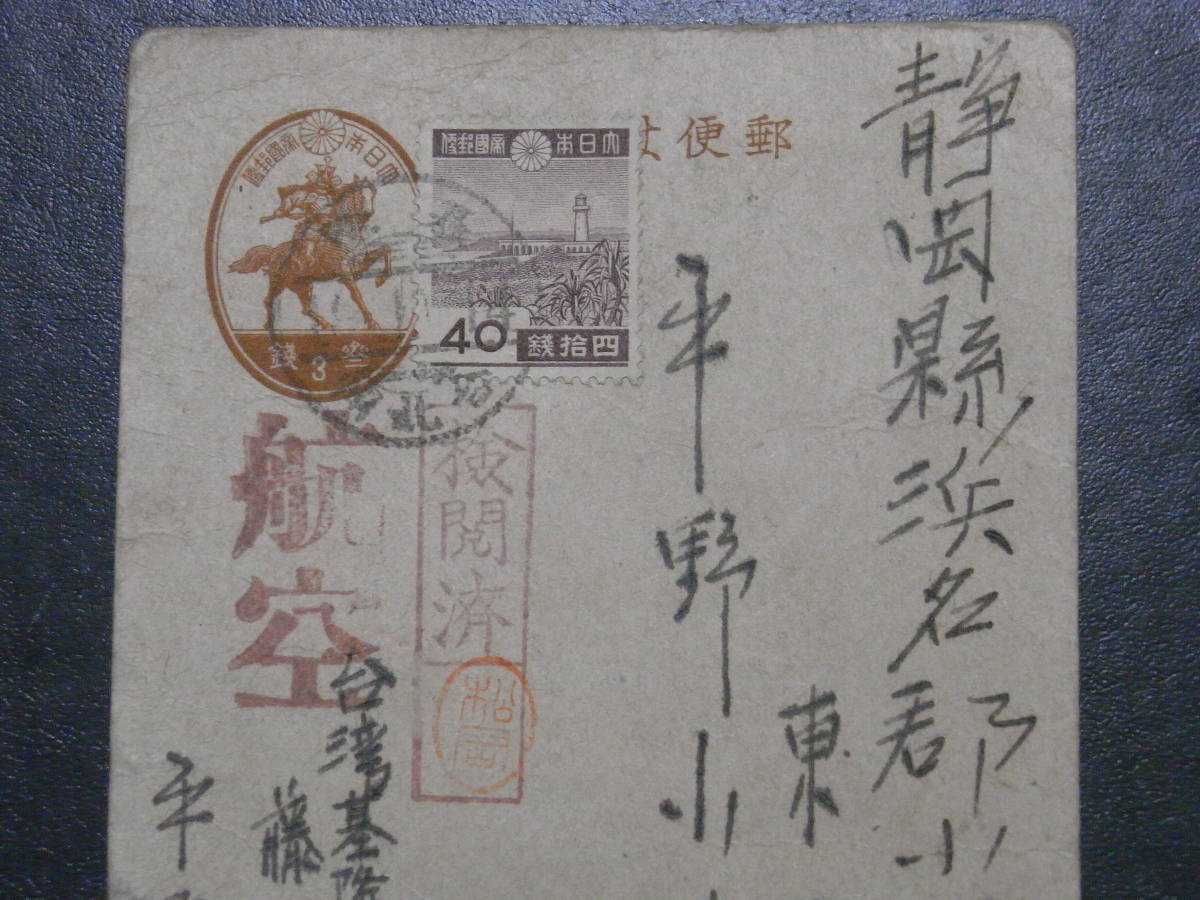 静岡縣浜名郡小
東
平野小
郵便
大日本帝國郵便
叁錢
3
大日本帝國郵便
40
四拾錢
台北
航空
検閲済
松岡
台湾基隆
藤
平